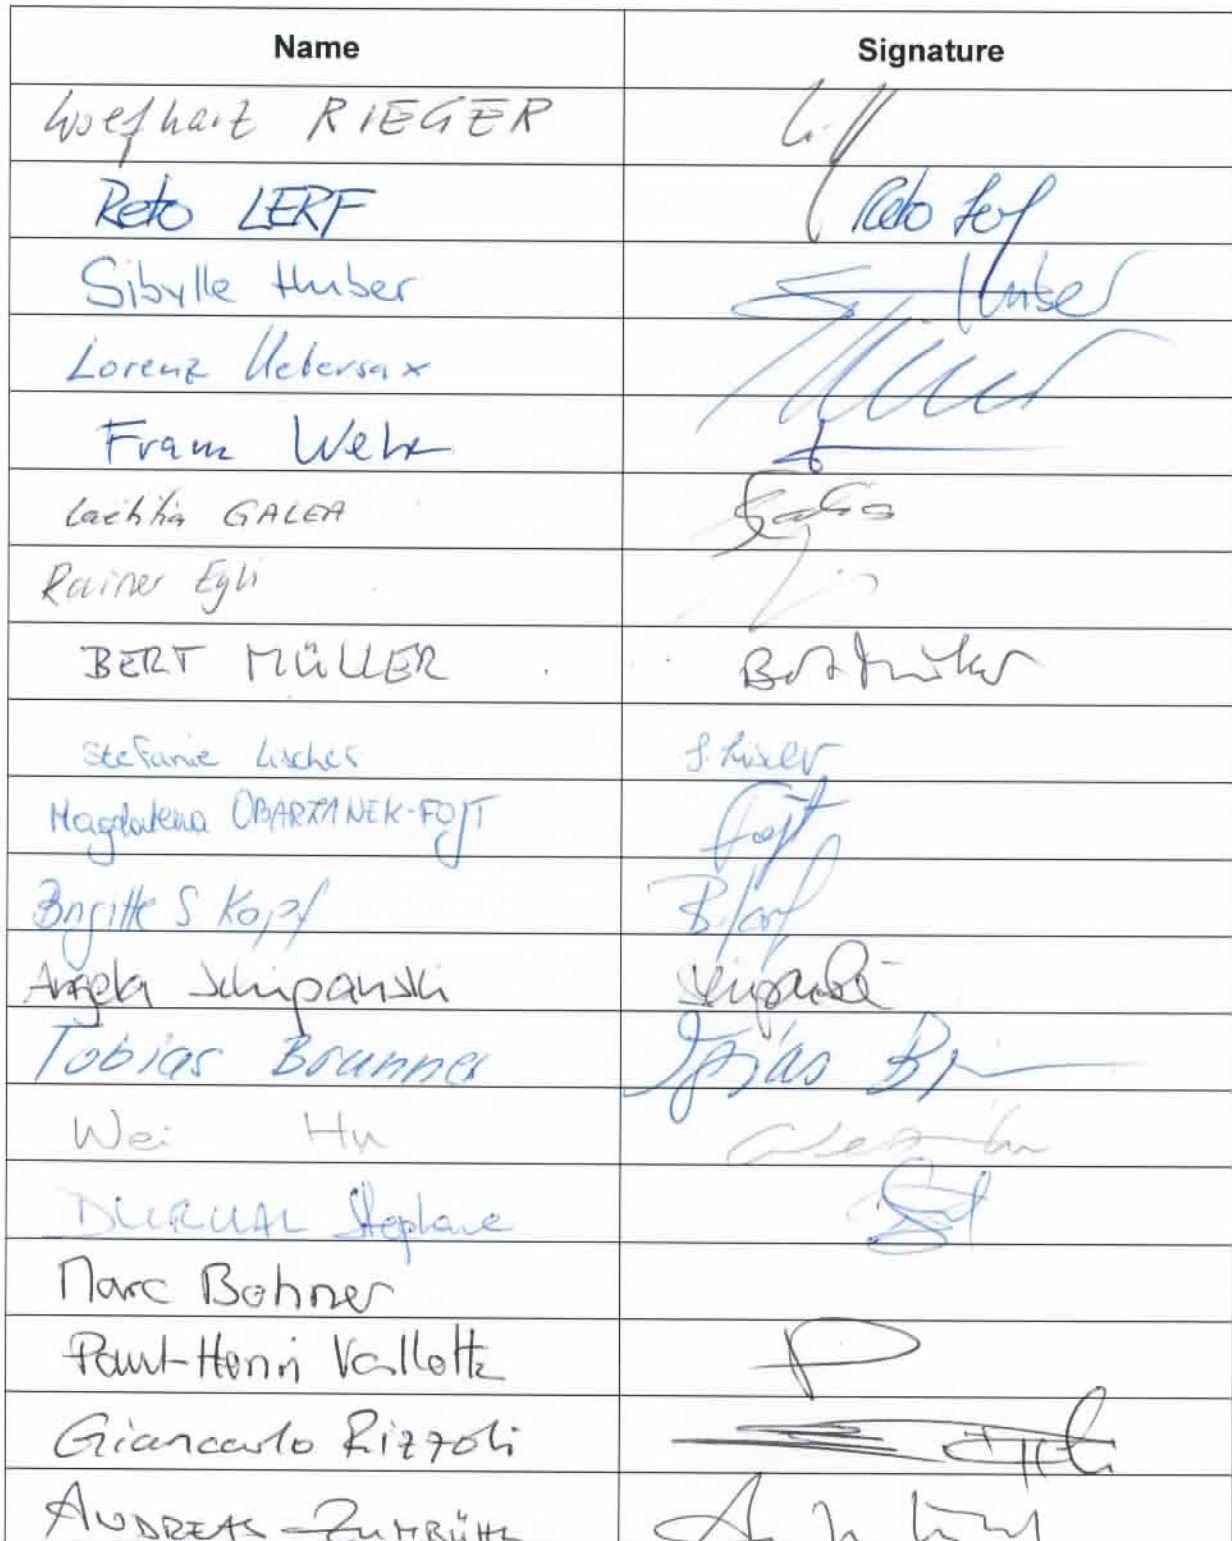 Name Signature
Wolfhart RIEGER
Reto LERF Reto Lerf
Sibylle Huber S. Huber
Lorenz Uebersax
Franz Weber
Laëtitia GALEA Galea
Rainer Egli
BERT MÜLLER Bert Müller
Stefanie Lischer S. Lischer
Magdalena OBARZANEK-FOJT Fojt
Brigitte S. Kopf B. Kopf
Angela Schipanski Schipanski
Tobias Brunner Tobias
Wei Hu
DURUAL Stephane
Marc Bohner
Paul-Henri Vallotton
Giancarlo Rizzoli
ANDREAS ZUMBÜHL